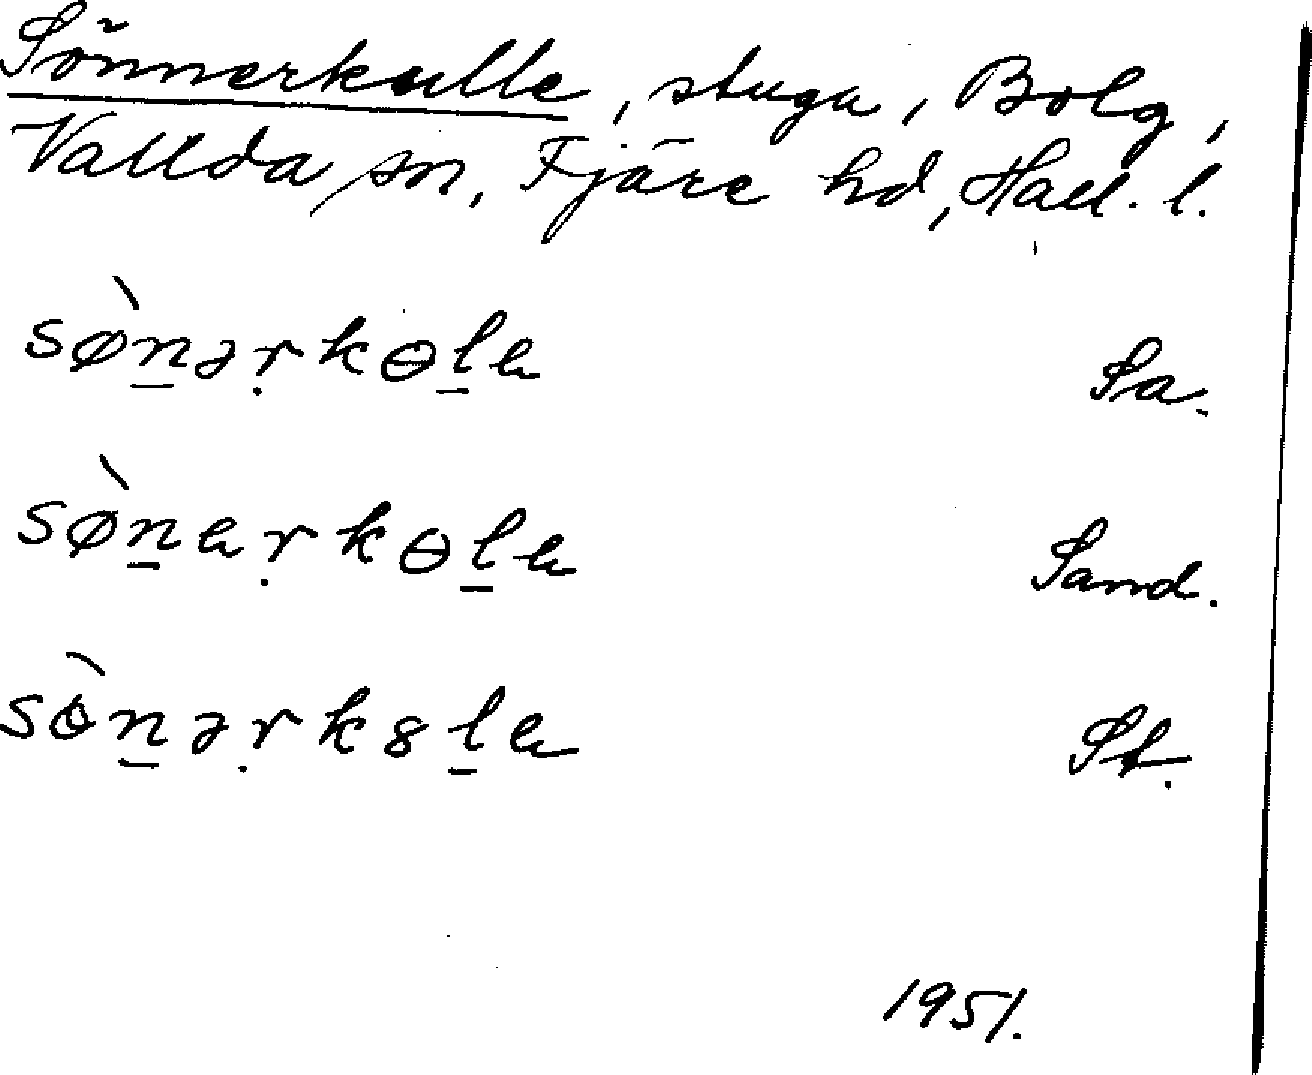 Sönnerkulle, stuga, Bolg,
Vallda sn, Fjäre hd, Hall. l.
sø̀n̲ərkɵl̲a Sa.
sø̀n̲arkɵl̲a Sand.
sɵ̀n̲ərk8l̲a St.
1951.